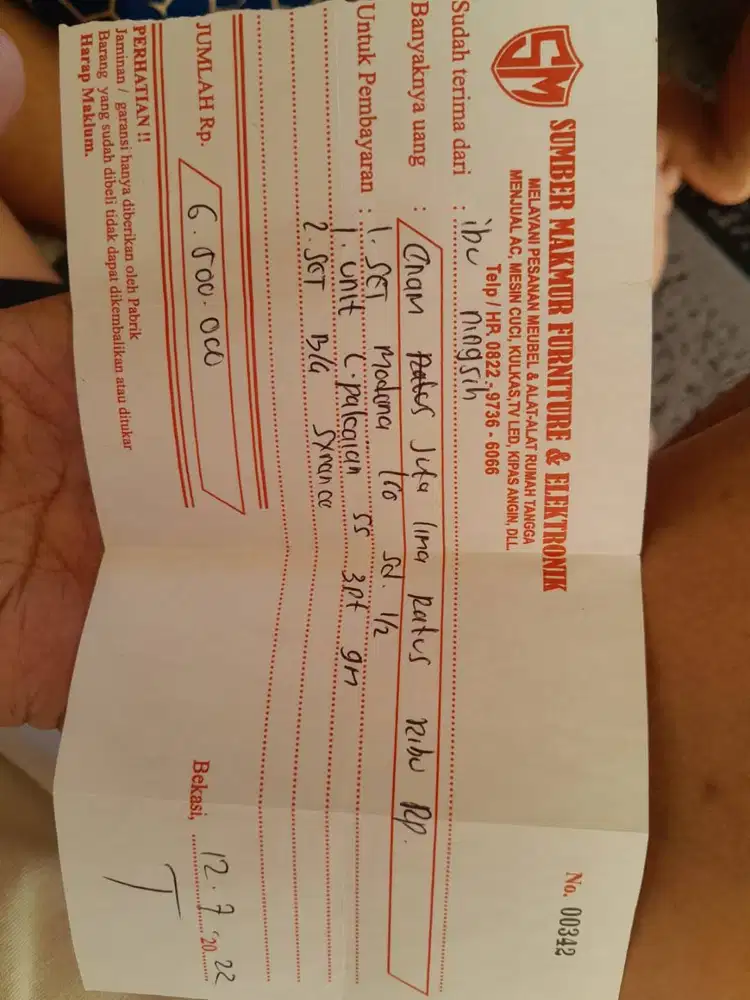 SM
SUMBER MAKMUR FURNITURE & ELEKTRONIK
MELAYANI PESANAN MEUBEL & ALAT-ALAT RUMAH TANGGA
MENJUAL AC, MESIN CUCI, KULKAS, TV LED, KIPAS ANGIN, DLL.
Telp / HP. 0822 - 9736 - 6066
No. 00342
Sudah terima dari : ibu ningsih
Banyaknya uang : Enam Ratus Juta lima Ratus Ribu Rp.
Untuk Pembayaran : 1. SET Modena 160 sd. 1/2
1. unit L. pakaian SS 3pt gm
2. SET B/G
JUMLAH Rp. 6.500.000
Bekasi, 12.7.2022
PERHATIAN !!
Jaminan / garansi hanya diberikan oleh Pabrik
Barang yang sudah dibeli tidak dapat dikembalikan atau ditukar
Harap Maklum.